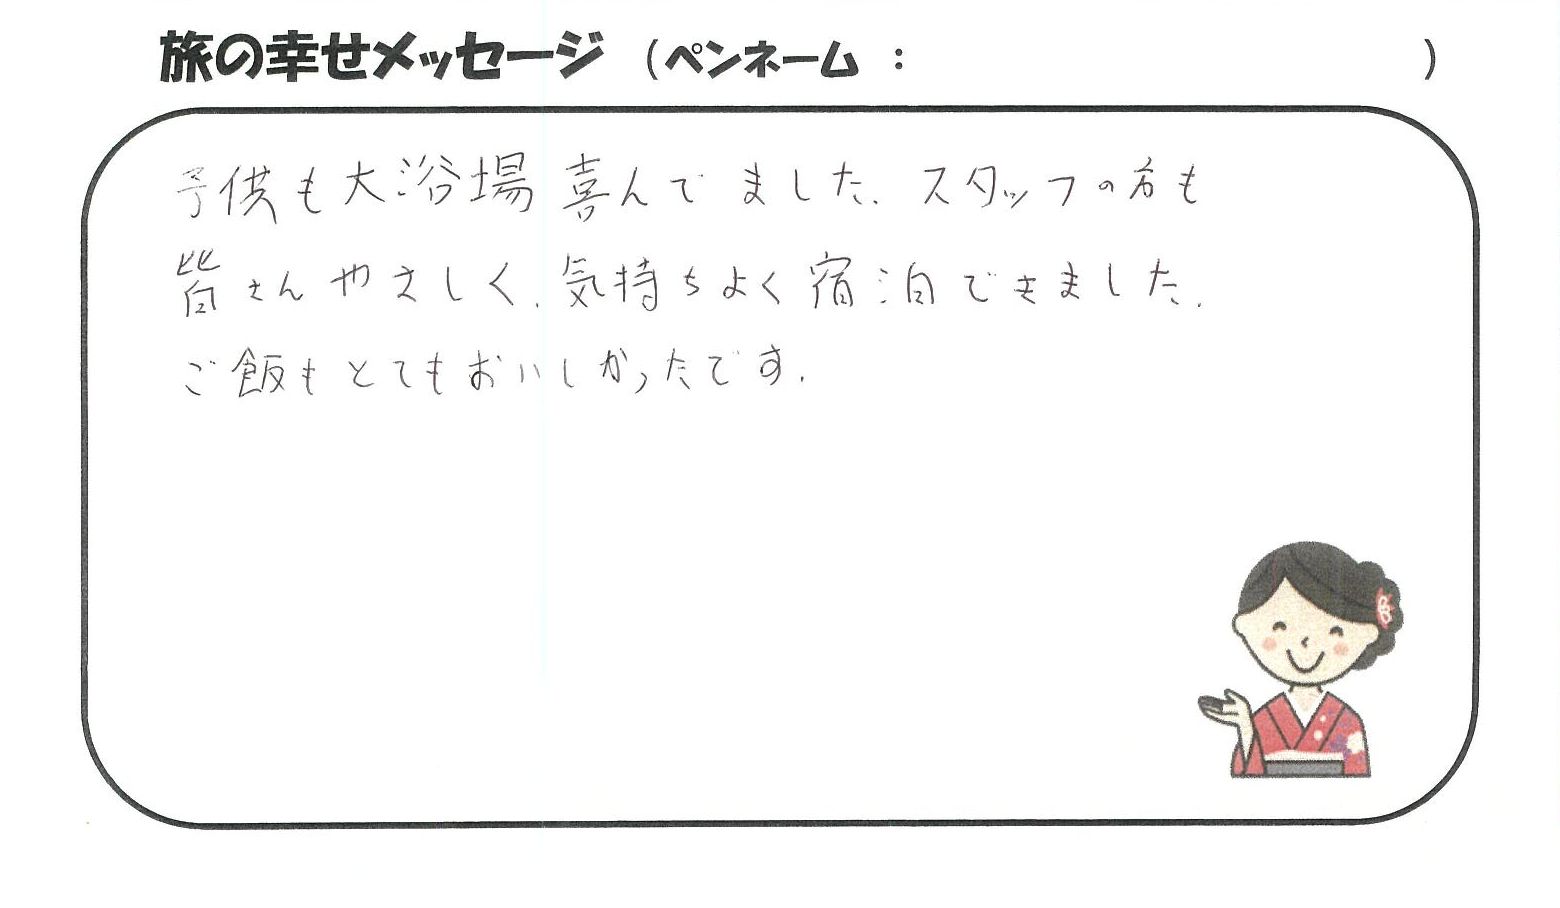 旅の幸せメッセージ （ペンネーム ： ）
子供も大浴場 喜んでました. スタッフの方も
皆さんやさしく. 気持ちよく宿泊できました.
ご飯もとてもおいしかったです.